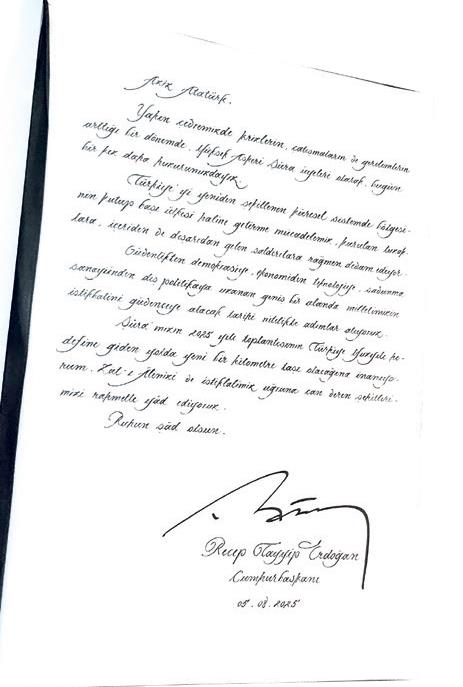 Aziz Atatürk,
Yakın çevremizde krizlerin, çatışmaların ve gerilimlerin
arttığı bir dönemde, Yüksek Askeri Şûra üyeleri olarak, bugün
bir kez daha huzurunuzdayız.
Türkiye'yi yeniden şekillenen küresel sistemde bölgesi-
nin kutup başı ülkesi haline getirme mücadelemiz, kurulan tuzak-
lara, içeriden ve dışarıdan gelen saldırılara rağmen devam ediyor.
Güvenlikten demokrasiye, ekonomiden teknolojiye, savunma
sanayiinden dış politikaya uzanan geniş bir alanda milletimizin
istikbalini güvenceye alacak tarihi nitelikte adımlar atıyoruz.
Şûra'mızın 2025 yılı toplantısının Türkiye Yüzyılı he-
define giden yolda yeni bir kilometre taşı olacağına inanıyo-
rum. Zat-ı Âlinizi ve istiklalimiz uğruna can veren şehitleri-
mizi rahmetle yâd ediyoruz.
Ruhun şâd olsun.
Recep Tayyip Erdoğan
Cumhurbaşkanı
05.08.2025